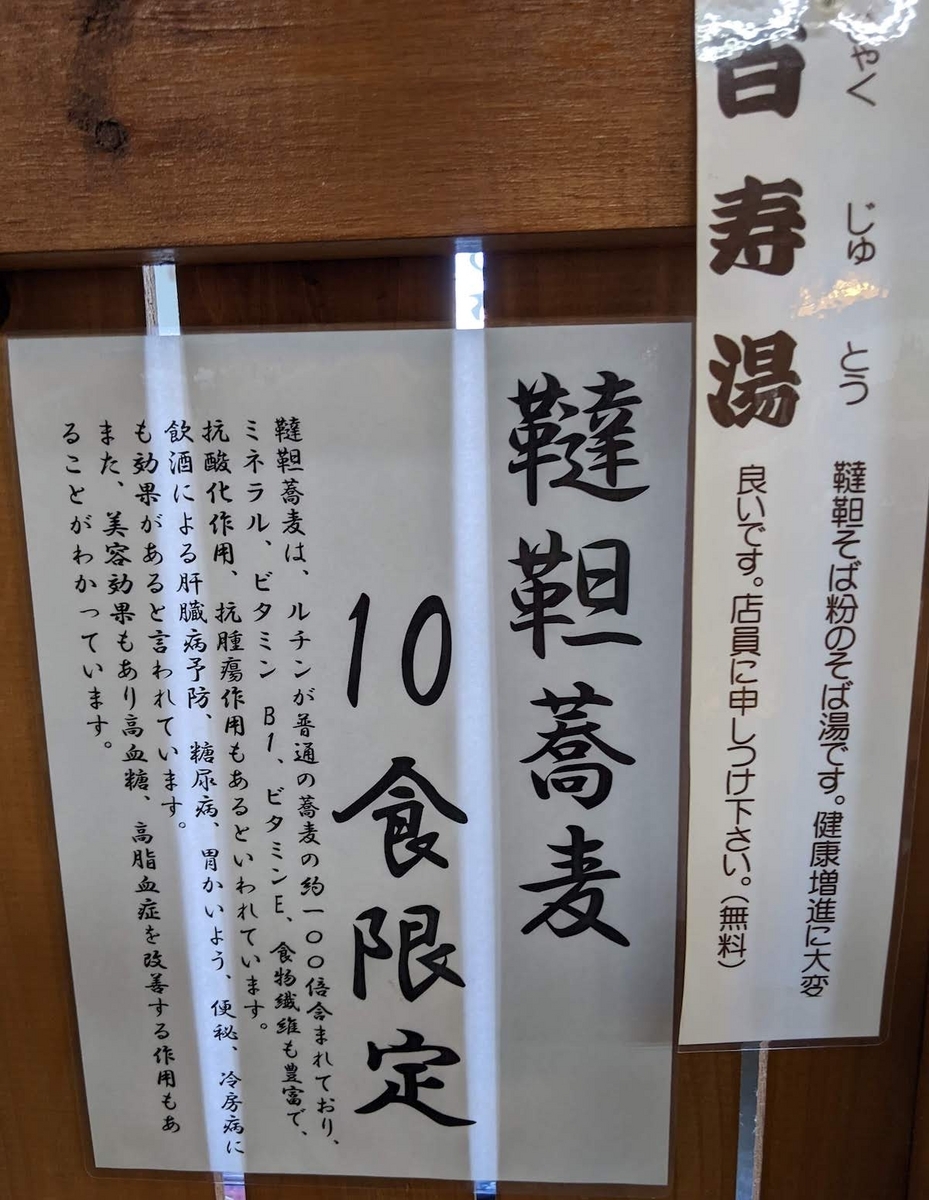 百寿湯
ゃくじゅとう
韃靼そば粉のそば湯です。健康増進に大変
良いです。店員に申しつけ下さい。（無料）
韃靼蕎麦
10食限定
韃靼蕎麦は、ルチンが普通の蕎麦の約一〇〇倍含まれており、
ミネラル、ビタミン B1、ビタミンE、食物繊維も豊富で、
抗酸化作用、抗腫瘍作用もあるといわれています。
飲酒による肝臓病予防、糖尿病、胃かいよう、便秘、冷房病に
も効果があると言われています。
また、美容効果もあり高血糖、高脂血症を改善する作用もあ
ることがわかっています。